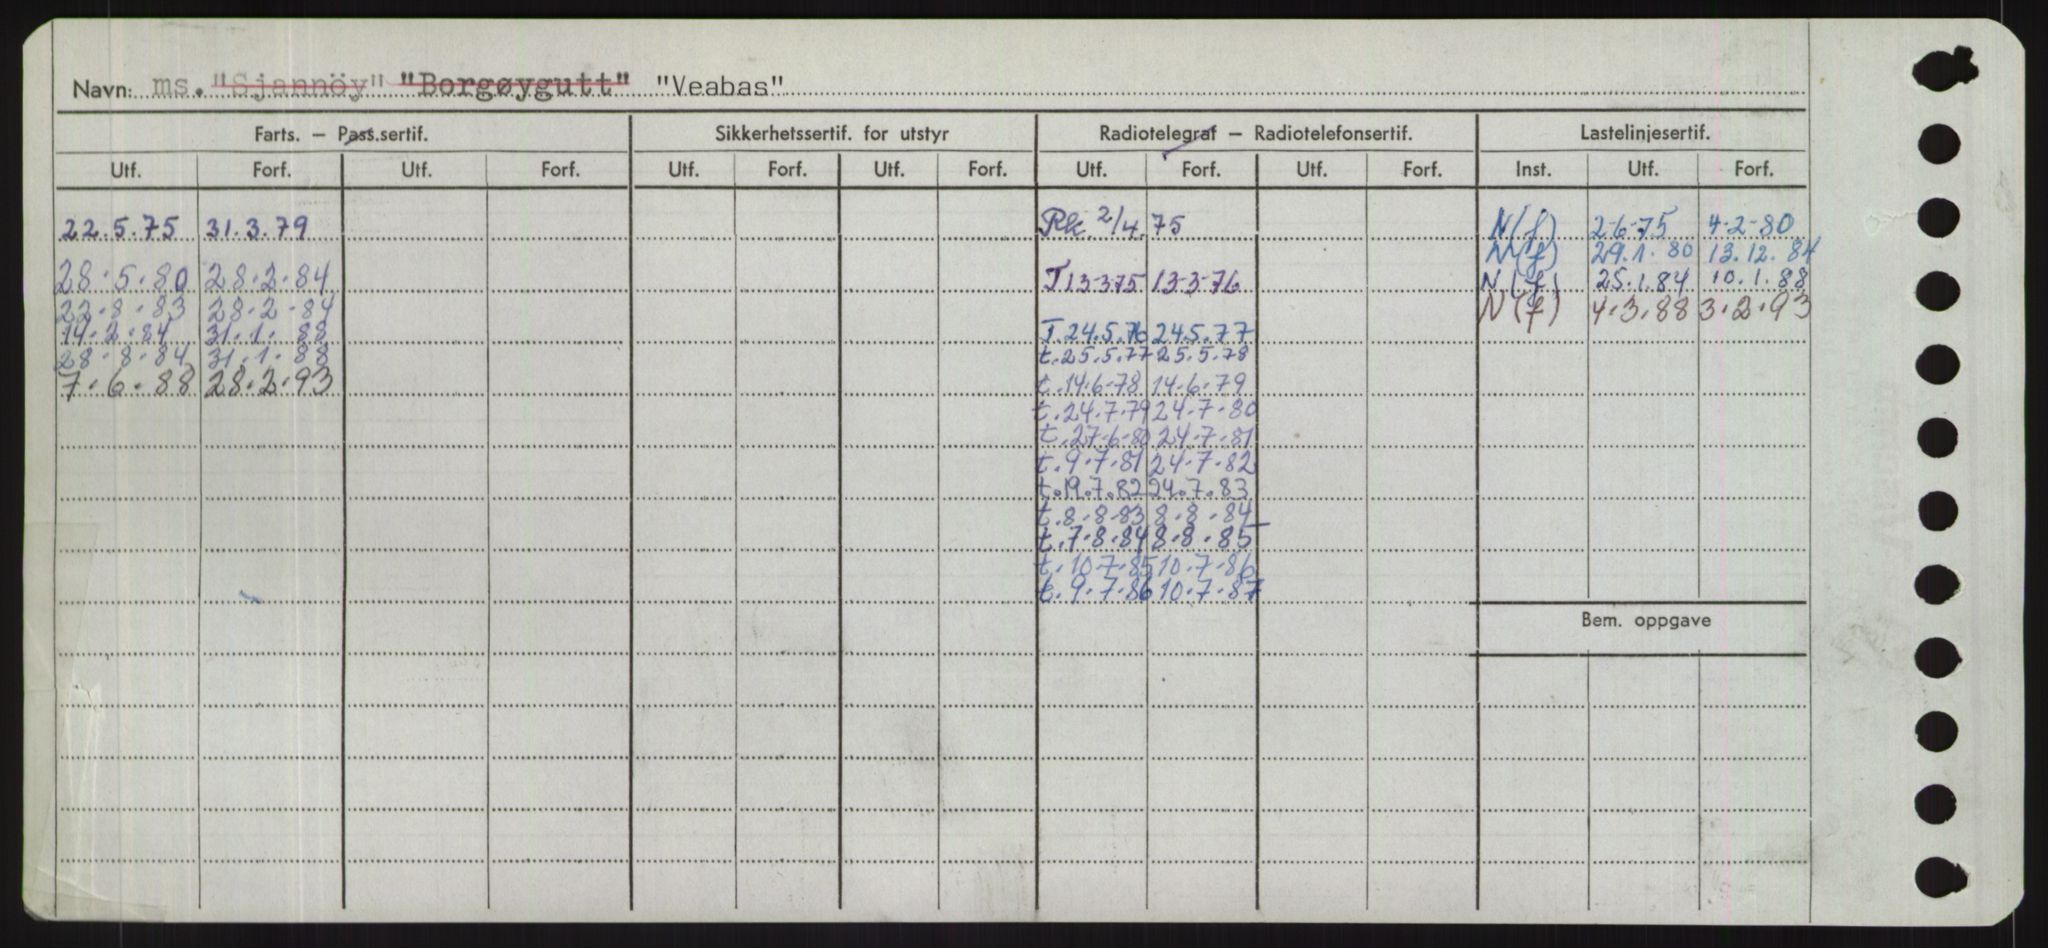 Navn: ms. "Sjannöy" "Borgøygutt" "Veabas"
Farts. — Pass.sertif. Sikkerhetssertif. for utstyr Radiotelegraf — Radiotelefonsertif. Lastelinjesertif.
Utf. Forf. Utf. Forf. Utf. Forf. Utf. Forf. Utf. Forf. Utf. Forf. Inst. Utf. Forf.
22.5.75 31.3.79 Rk. 2/4.75 N(f) 2-6-75 4-2-80
N(f) 29.1.80 13.12.84
28.5.80 28.2.84 T 13-3-75 13-3-76 N(f) 25.1.84 10.1.88
22.8.83 28.2.84 N(f) 4.3.88 3.2.93
14.2.84 31.1.88 T.24.5.76 24.5.77
28.8.84 31.1.88 t.25.5.77 25.5.78
7.6.88 28.2.93 t.14.6.78 14.6.79
t.24.7.79 24.7.80
t.27.6.80 24.7.81
t.9.7.81 24.7.82
t.19.7.82 24.7.83
t.8.8.83 8.8.84
t.7.8.84 8.8.85
t.10.7.85 10.7.86
t.9.7.86 10.7.87
Bem. oppgave